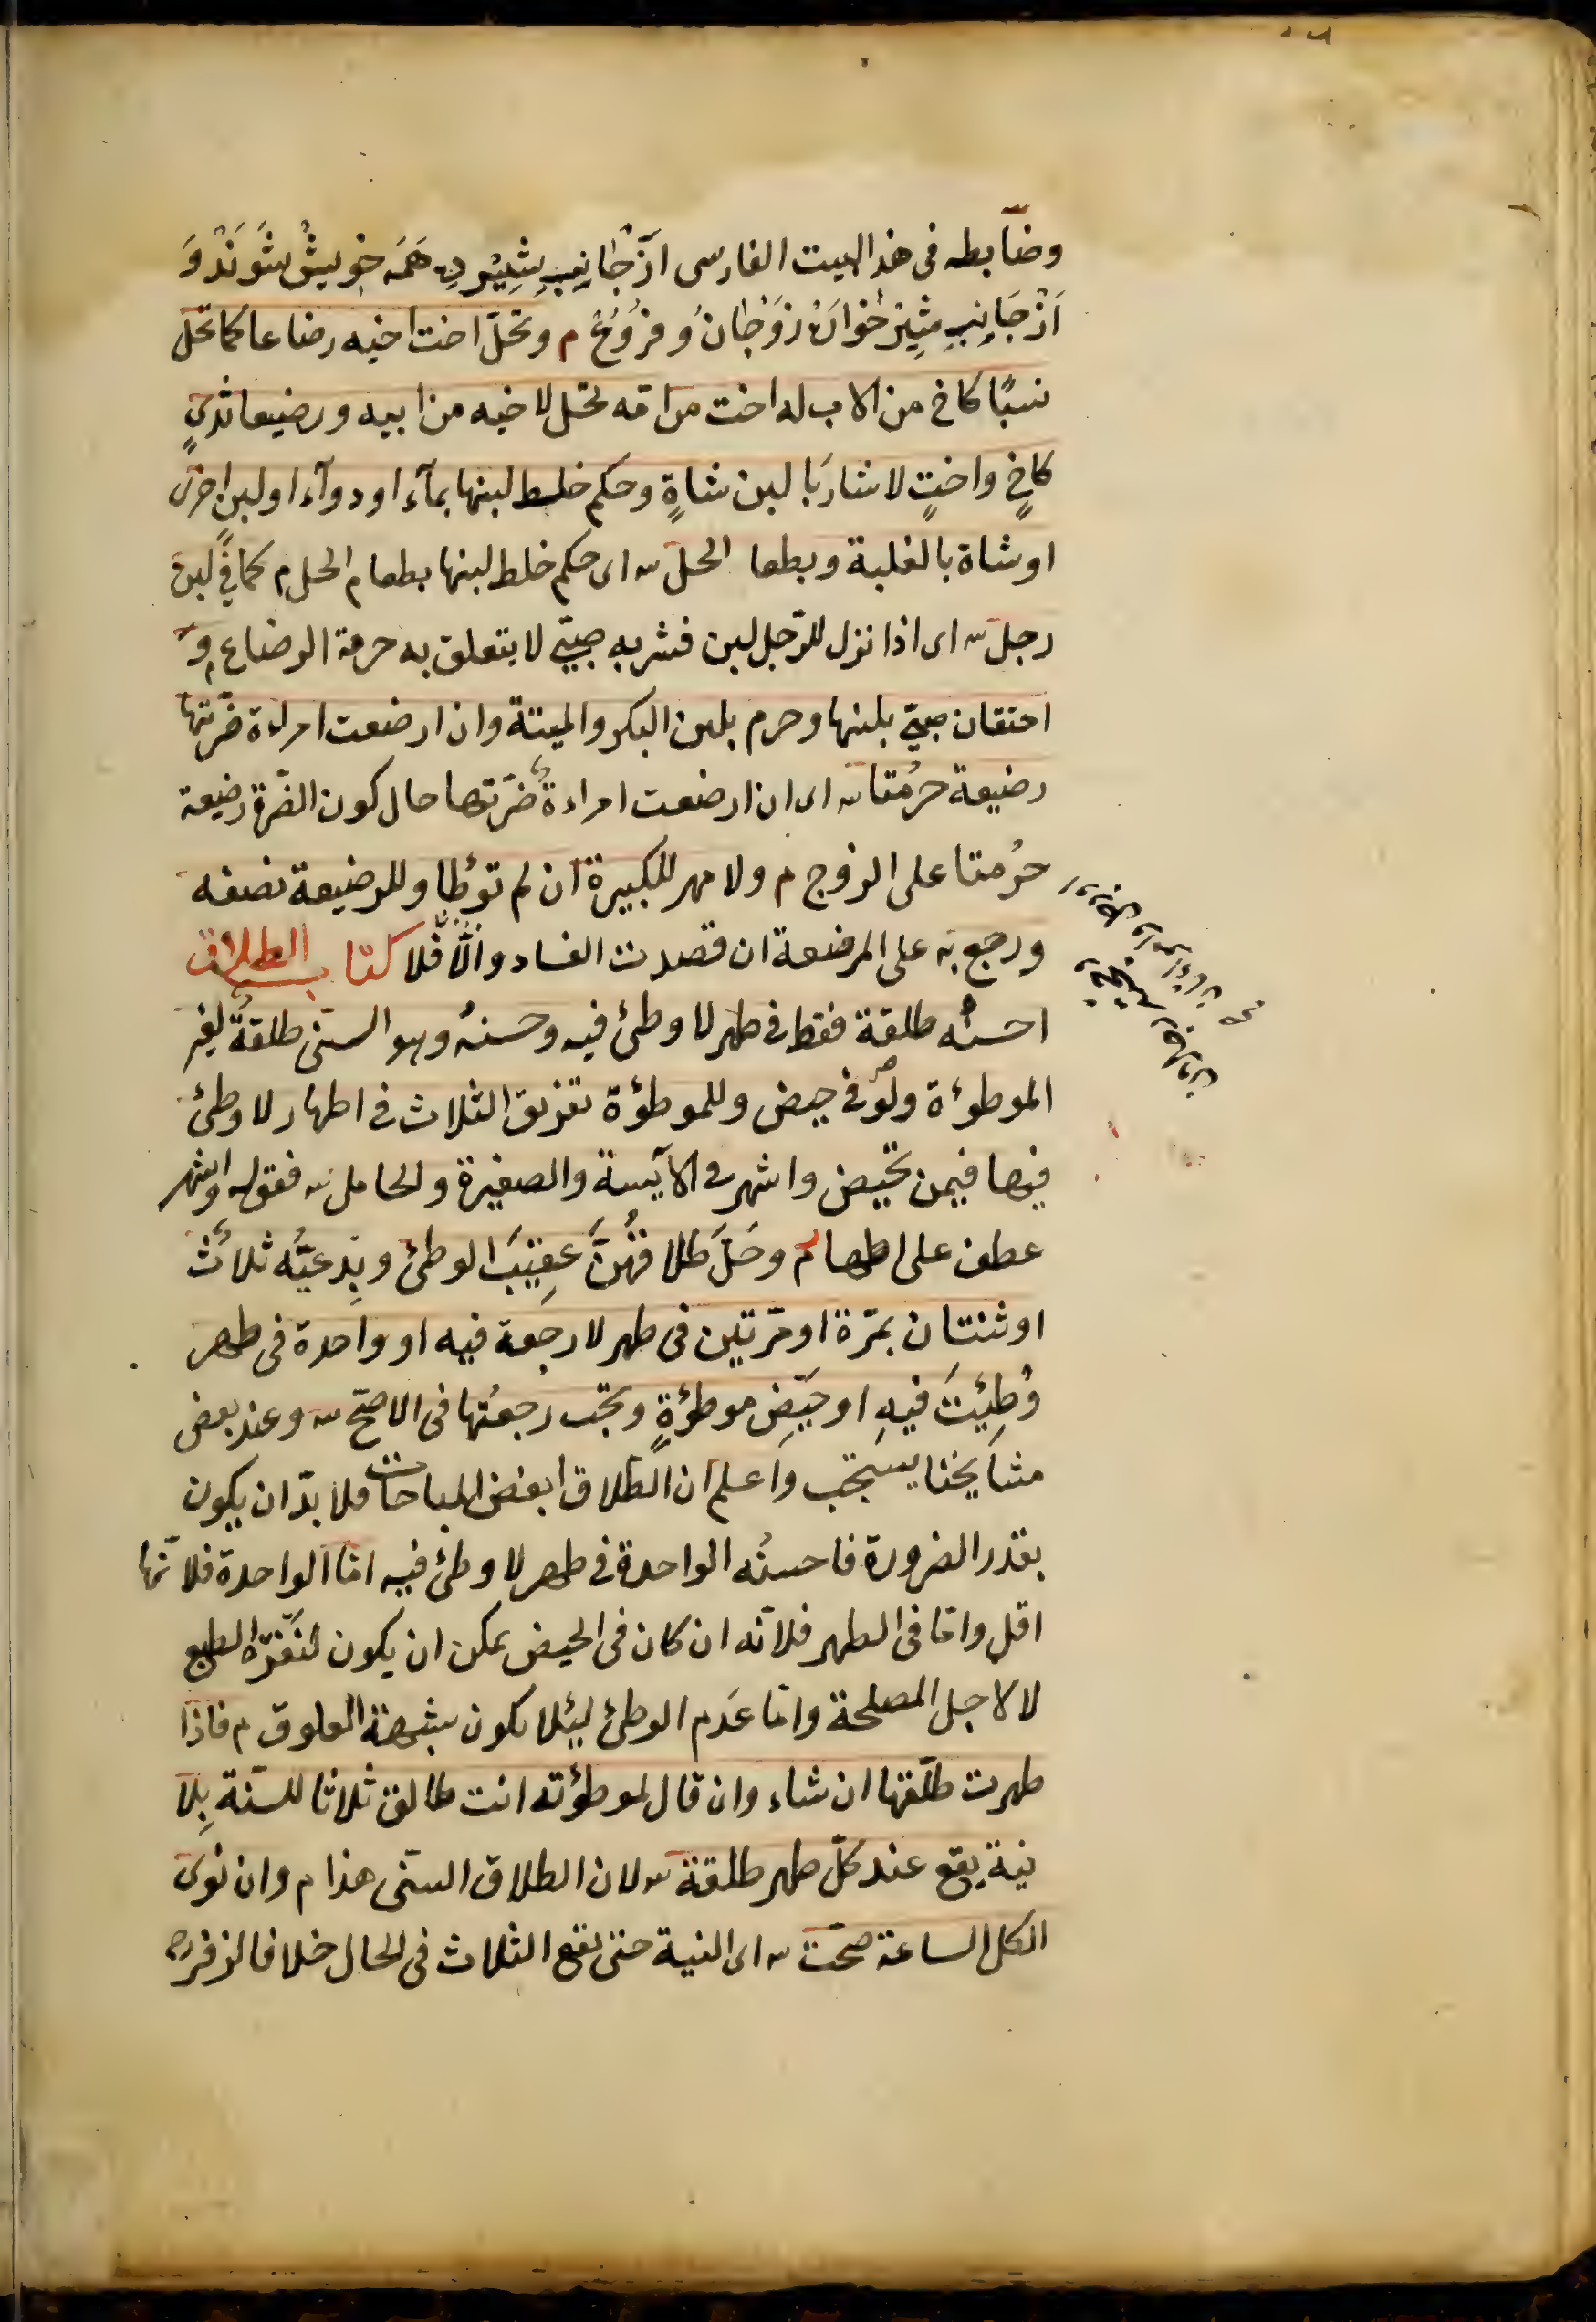 وضابطه فى هذا البيت الفارسى اَزْ جَانِبِ شِيْردِه هَمَه خويش شَوَنْدْ وَ
اَزْ جَانِبِ شِيْرْ خْوَارَه زَوْجَانُ و فُرُوْعْ م وتحلّ اخت اخيه رضاعا كما تحلّ
نسبًا كاخ من الاب له اخت من امّه تحلّ لاخيه من ابيه ورضيعا ثديٍ
كاخٍ واختٍ لا شاربَا لبن شاةٍ وحكم خلط لبنها بمآء او دوآء او لبن اخرى
او شاة بالغلبة وبطعا الحلّ ش اى حكم خلط لبنها بطعام الحل م كما فى لبن
رجل ش اى اذا نزل للرّجل لبن فشربه صبىّ لا يتعلق به حرمة الرضاع م و
احتقان صبىّ بلبنها وحرم بلبن البكر والميتة وان ارضعت امراءة ضرّتها
رضيعة حرُمتا ش اى ان ارضعت امراءةٌ ضرّتها حال كون الضّرة رضيعة
حرُمتا على الزوج م ولا مهر للكبيرة ان لم توطأ وللرضيعة نصفه
ورجع به على المرضعة ان قصدت الفساد والّا فلا كتاب الطلاق
احسنُه طلقة فقط فى طهر لا وطئ فيه وحسنهُ وهو السنى طلقةٌ لغير
الموطوءة ولو فى حيض وللموطؤة تفريق الثلاث فى اطهار لا وطئ
فيها فيمن تحيض واشهر فى الآيسة والصغيرة والحامل ش فقوله واشهر
عطف على اطهار م وحَلَّ طلاقهُنَّ عقيبَ الوطئ وبِدعيُّه ثلاثٌ
او ثنتان بمرّة او مرّتين فى طهر لا رجعة فيه او واحدة فى طهر
وُطِئِتَ فيهِ او حيضِ موطؤةٍ وتجب رجعتُها فى الاصحّ ش وعند بعض
مشايخنا يستحبّ واعلم ان الطّلاق ابغض المباحات فلا بدّ ان يكون
بقدر الضرورة فاحسنُه الواحدة فى طهر لا وطئ فيه امّا الواحدة فلانّها
اقل وامّا فى الطهر فلانّه ان كان فى الحيض يمكن ان يكون لنفرة الطبع
لا لاجل المصلحة وامّا عَدم الوطئ ليئلا يكون شبهة العلوق م فاذا
طهرت طلّقها ان شاء وان قال لموطؤته انت طالق ثلاثا للسّنة بِلا
نية يقع عند كلّ طهر طلقة ش لان الطلاق السّنى هذا م وان نوى
الكل الساعة صحّت ش اى النية حتى يقع الثلاث فى الحال خلافا لزفر ره